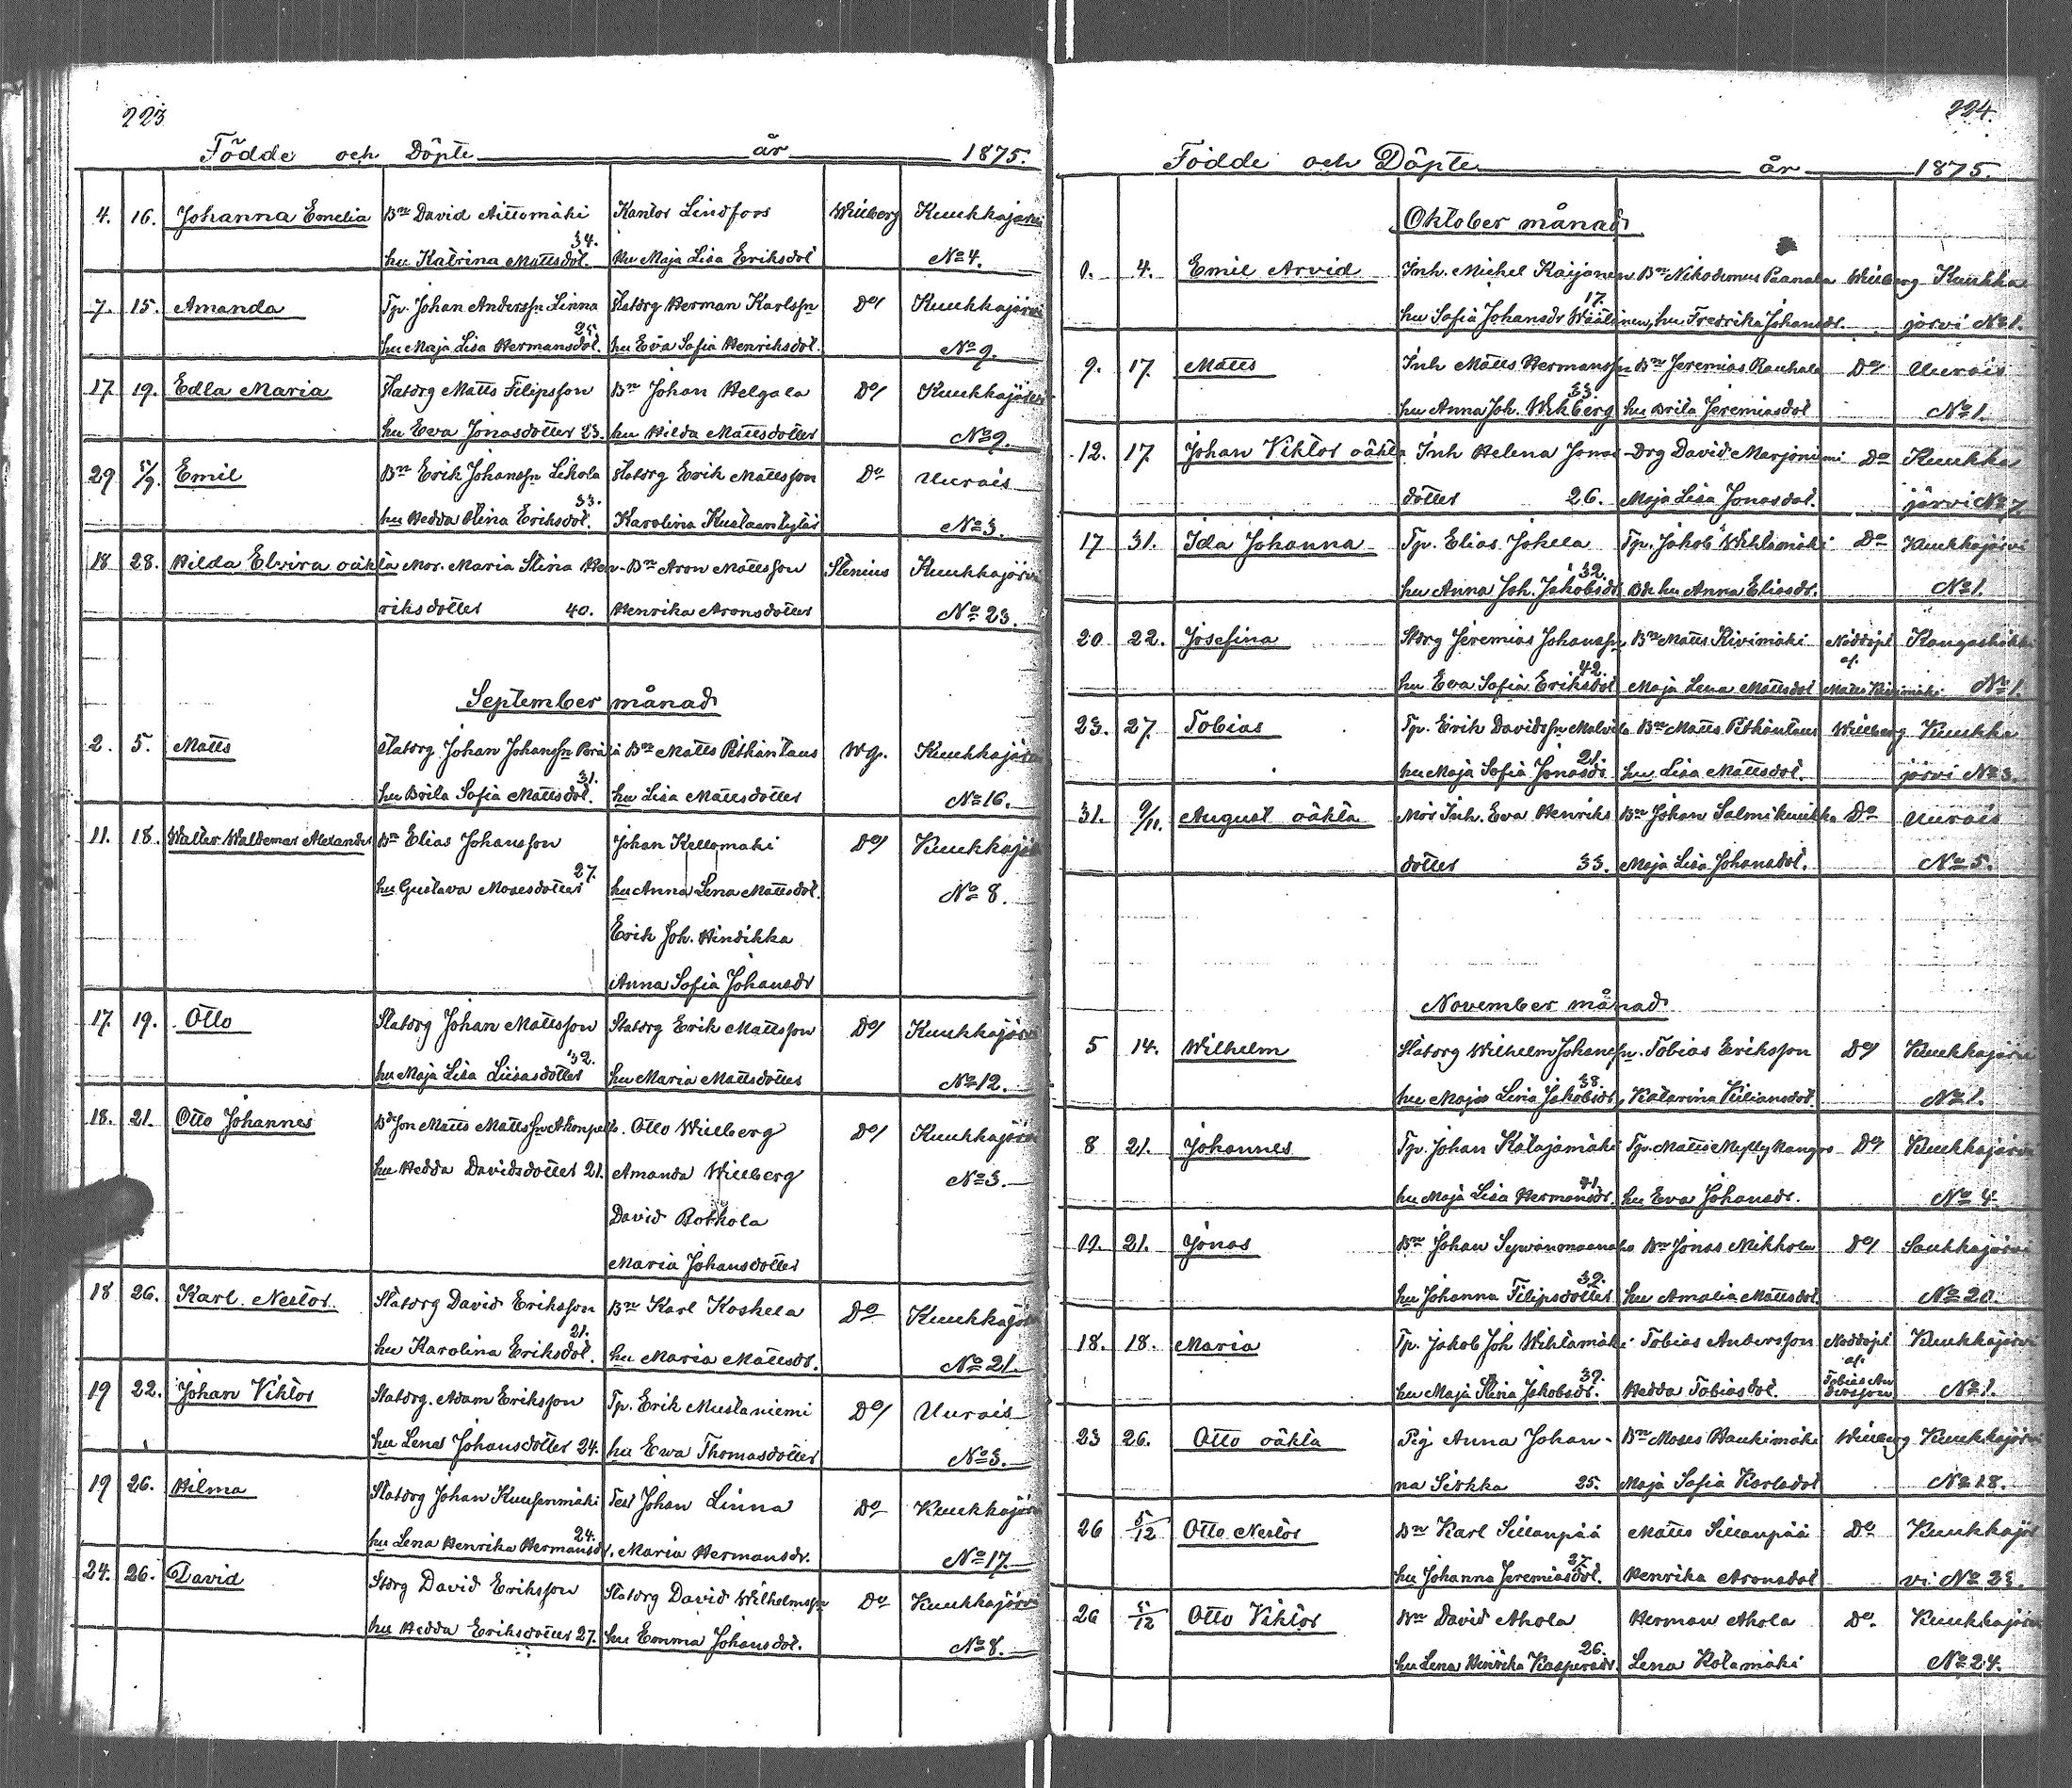 223.
Födde och Döpte år 1875.
4. 16. Johanna Emelia Bne David Aittomäki Kantor Lindfors Willberg Kuukkajärvi
34.
hu Katrina Mattsdot. hu Maja Lisa Eriksdot No 4.
7. 15. Amanda Tp. Johan Anderssn Linna Statorg Herman Karlssn Do Kuukkajärvi
25.
hu Maja Lisa Hermansdot. hu Eva Sofia Henriksdot. No 9.
17. 19. Edla Maria Statorg Matts Filipsson Bne Johan Helgala Do Kuukkajärvi
hu Eva Jonasdotter 23. hu Hilda Mattsdotter No 9.
29 5/9. Emil Bne Erik Johanssn Lehola Statorg Erik Mattsson Do Uurais
33.
hu Hedda Stina Eriksdot. Karolina Kustaantytär No 3.
18 28. Hilda Elvira oäkta Mor. Maria Stina Hen- Bne Aron Mattsson Stenius Kuukkajärvi
riksdotter 40. Henrika Aronsdotter No 23.
September månad
2. 5. Matts Statorg Johan Johanssn Bne Matts Pitkäntaus Wg. Kuukkajärvi
31.
hu Brita Sofia Mattsdot. hu Lisa Mattsdotter No 16.
11. 18. Walter Waldemar Alexander Bne Elias Johansson Johan Kellomäki Do Kuukkajärvi
27.
hu Gustava Mosesdotter hu Anna Lena Mattsdot. No 8.
Erik Joh. Hindikka
Anna Sofia Johansdr
17. 19. Otto Statorg Johan Mattsson Statorg Erik Mattsson Do Kuukkajärvi
32.
hu Maja Lisa Liisasdotter hu Maria Mattsdotter No 12.
18. 21. Otto Johannes Bdeson Matts Mattssn Otto Willberg Do Kuukkajärvi
hu Hedda Davidsdotter 21. Amanda Willberg No 3.
David Rothola
Maria Johansdotter
18 26. Karl Nestor. Statorg David Eriksson Bne Karl Koskela Do Kuukkajärvi
21.
hu Karolina Eriksdot. hu Maria Mattsdr. No 21.
19 22. Johan Viktor Statorg. Adam Eriksson Tp. Erik Mustaniemi Do Uurais
hu Lena Johansdotter 24. hu Ewa Thomasdotter No 3.
19 26. Hilma Statorg Johan Kuusenmäki Test Johan Linna Do Kuukkajärvi
24.
hu Lena Henrika Hermansdr. Maria Hermansdr. No 17.
24. 26. David Storg David Eriksson Statorg David Wilhelmssn Do Kuukkajärvi
hu Hedda Eriksdotter 27. hu Emma Johansdot. No 8.
224.
Födde och Döpte år 1875.
Oktober månad
1. 4. Emil Arvid Inh. Michel Kaijanen Bne Nikodemus Raanala Willberg Kuukka
17.
hu Sofia Johansdr Wäätänen, hu Fredrika Johansdr. järvi No 1.
9. 17. Matts Inh Matts Hermanssn Bne Jeremias Rauhala Do Uurais
33.
hu Anna Joh. Wikberg hu Brita Jeremiasdot No 1.
12. 17. Johan Viktor oäkta Inh Helena Jonas- Drg David Marjoniemi Do Kuukka
dotter 26. Maja Lisa Jonasdot. järvi No 7.
17 31. Ida Johanna Tp. Elias Jokela Tp. Jakob Wihtamäki Do Kuukkajärvi
32.
hu Anna Joh. Jakobsdr hu Anna Eliasdr. No 1.
20 22. Josefina Storg Jeremias Johanssn, Bne Matts Kivimäki Nöddöpt Kangashäkki
af.
42.
hu Eva Sofia Eriksdot Maja Lena Mattsdot Matts Kivimäki No 1.
23. 27. Tobias Tp. Erik Davidssn Bne Matts Pitkäntaus Willberg Kuukka
21.
hu Maja Sofia Jonasdr. hu Lisa Mattsdot. järvi No 3.
31. 9/11. August oäkta Mor Inh. Eva Henriks Bne Johan Salmikuukka Do Uurais
dotter 33. Maja Lisa Johansdot. No 5.
November månad.
5 14. Wilhelm Statorg Wilhelm Johanssn. Tobias Eriksson Do Kuukkajärvi
38.
hu Maja Lina Jakobsdr, Katarina Kiliansdot. No 1.
8 21. Johannes Tp. Johan Katajamäki Tp. Matts Myllykangas Do Kuukkajärvi
hu Maja Lisa Hermansdr. hu Eva Johansdr. No 4.
19. 21. Jonas Bne Johan Sywänmaenaho Bne Jonas Mikkola Do Saukkajärvi
32.
hu Johanna Filipsdotter hu Amalia Mattsdot. No 20.
18. 18. Maria Tp. Jakob Joh Wihtamäki Tobias Andersson Nöddöpt Kuukkajärvi
af.
39.
hu Maja Stina Jakobsdr. Hedda Tobiasdot. Tobias Andersson No 1.
23 26. Otto oäkta Pig Anna Johan- Bne Moses Haukimäki Willberg Kuukkajärvi
na Sirkka 25. Maja Sofia Karlsdot No 18.
26 5/12 Otto Nestor Bne Karl Sillanpää Matts Sillanpää Do Kuukkajär
27.
hu Johanna Jeremiasdot. Henrika Aronsdot vi No 23.
26 5/12 Otto Viktor Bne David Ahola Herman Ahola Do. Kuukkajärvi
26.
hu Lena Henrika Kaspersdr. Lena Kotamäki No 24.